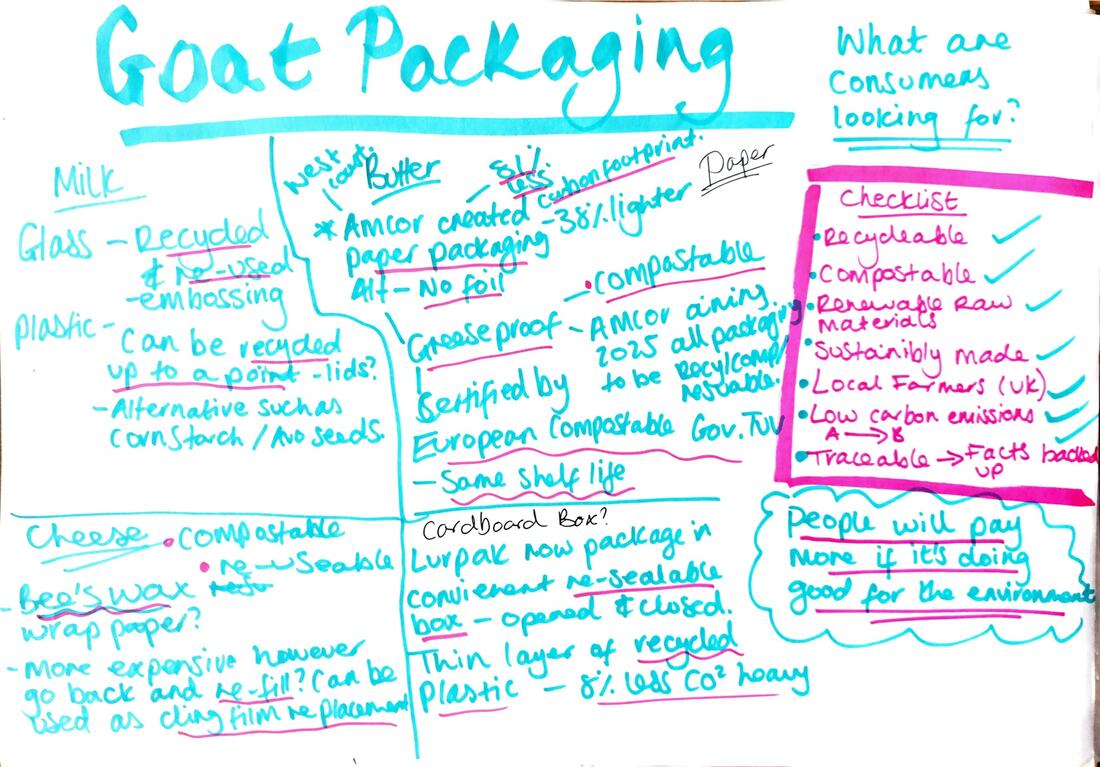 Goat Packaging
What are
Consumers
looking for?
Milk
Glass - Recycled
& re-used
- embossing
Plastic -
Can be recycled
up to a point - lids?
- Alternative such as
Cornstarch / Avo seeds.
West
coast.
Butter
81%
less
carbon footprint.
Paper
* Amcor created - 38% lighter
paper packaging
Alt - No foil
• Compostable
Greeseproof - Amcor aiming
2025 all packaging
to be Recy/comp/
resuable.
Sertified by
European Compostable Gov. TUV
- Same shelf life
Checklist
• Recycleable ✓
• Compostable ✓
• Renewable Raw ✓
materials
• Sustainibly made ✓
• Local Farmers (UK) ✓
• Low carbon emissions ✓
A → B
• Traceable → Facts backed ✓
up
People will pay
more if it's doing
good for the environment
Cheese • Compostable
• re-useable
- Bee's wax
wrap paper?
- More expensive however
go back and re-fill? Can be
used as cling film replacement
Cardboard Box?
Lurpak now package in
convienent re-sealable
box - opened & closed.
Thin layer of recycled
plastic - 8% less CO² heavy